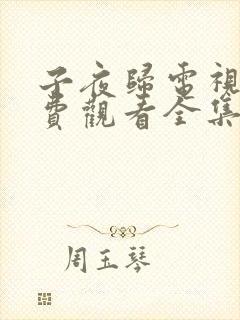 子夜歸電視
費觀看全集
周玉琴